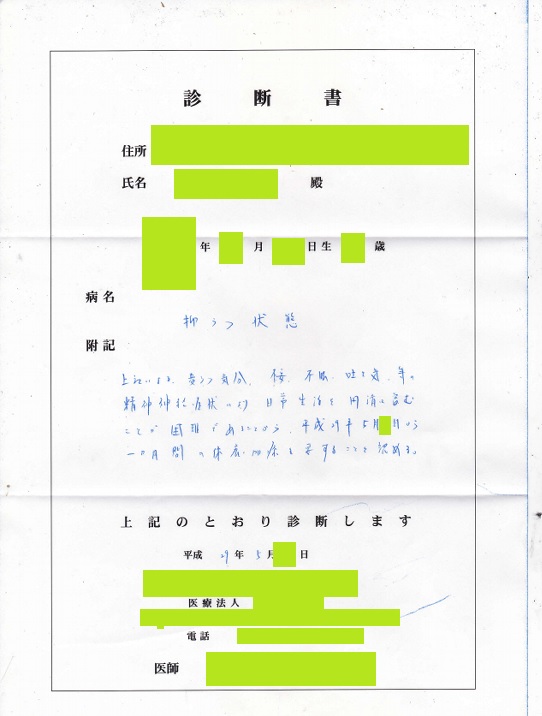 診断書
住所
氏名 殿
年 月 日生 歳
病名
抑うつ状態
附記
上記による、抑うつ気分、不安、不眠、吐き気、等の
精神神経症状により日常生活を円滑に営む
ことが困難であることから、平成29年5月 日から
一ヵ月間の休養・治療を要することを認める。
上記のとおり診断します
平成29年5月 日
医療法人
電話
医師